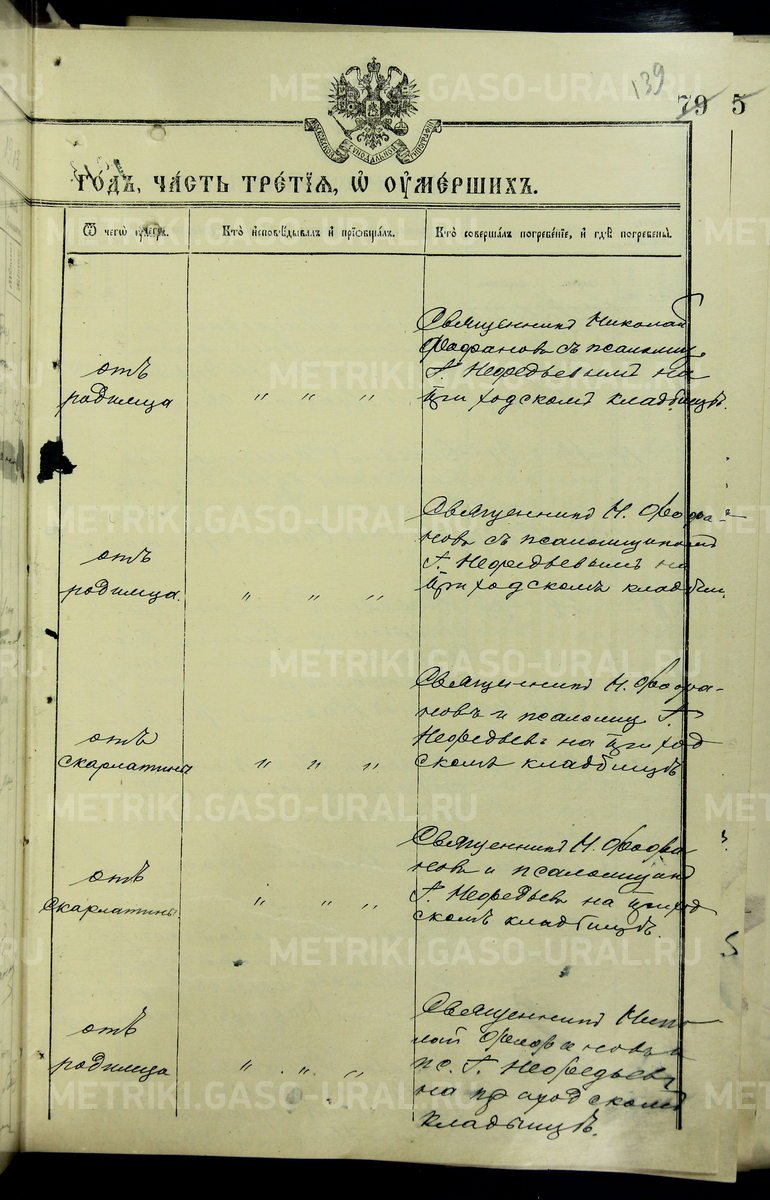 139
79 5
МОСКОВСКОЙ СѴНОДАЛЬНОЙ ТИПОГРАФІИ
ГОДЪ, ЧАСТЬ ТРЕТІЯ, Ѡ ОУМЕРШИХЪ.
Ѿ чегѡ оумеръ.
Кто исповѣдывалъ и прїобщалъ.
Кто совершалъ погребеніе, и гдѣ погребены.
отъ
родимца
" " "
Священникъ Николай
Феофановъ съ псаломщ.
Г. Нефедьевымъ на
приходскомъ кладбищѣ.
отъ
родимца.
" " "
Священникъ Н. Феофа-
новъ съ псаломщикомъ
Г. Нефедьевымъ на
приходскомъ кладбищ.
отъ
скарлатины
" " "
Священникъ Н. Феофа-
новъ и псаломщ Г.
Нефедьевъ на приход
скомъ кладбищѣ
отъ
Скарлатины
" " "
Священникъ Н. Феофа
новъ и псаломщикъ
Г. Нефедьев на приход
скомъ кладбищѣ.
отъ
родимца
" " "
Священникъ Нико
лай Феофановъ и
пс. Г. Нефедьевъ
на приходскомъ
кладбищѣ.
METRIKI.GASO-URAL.RU